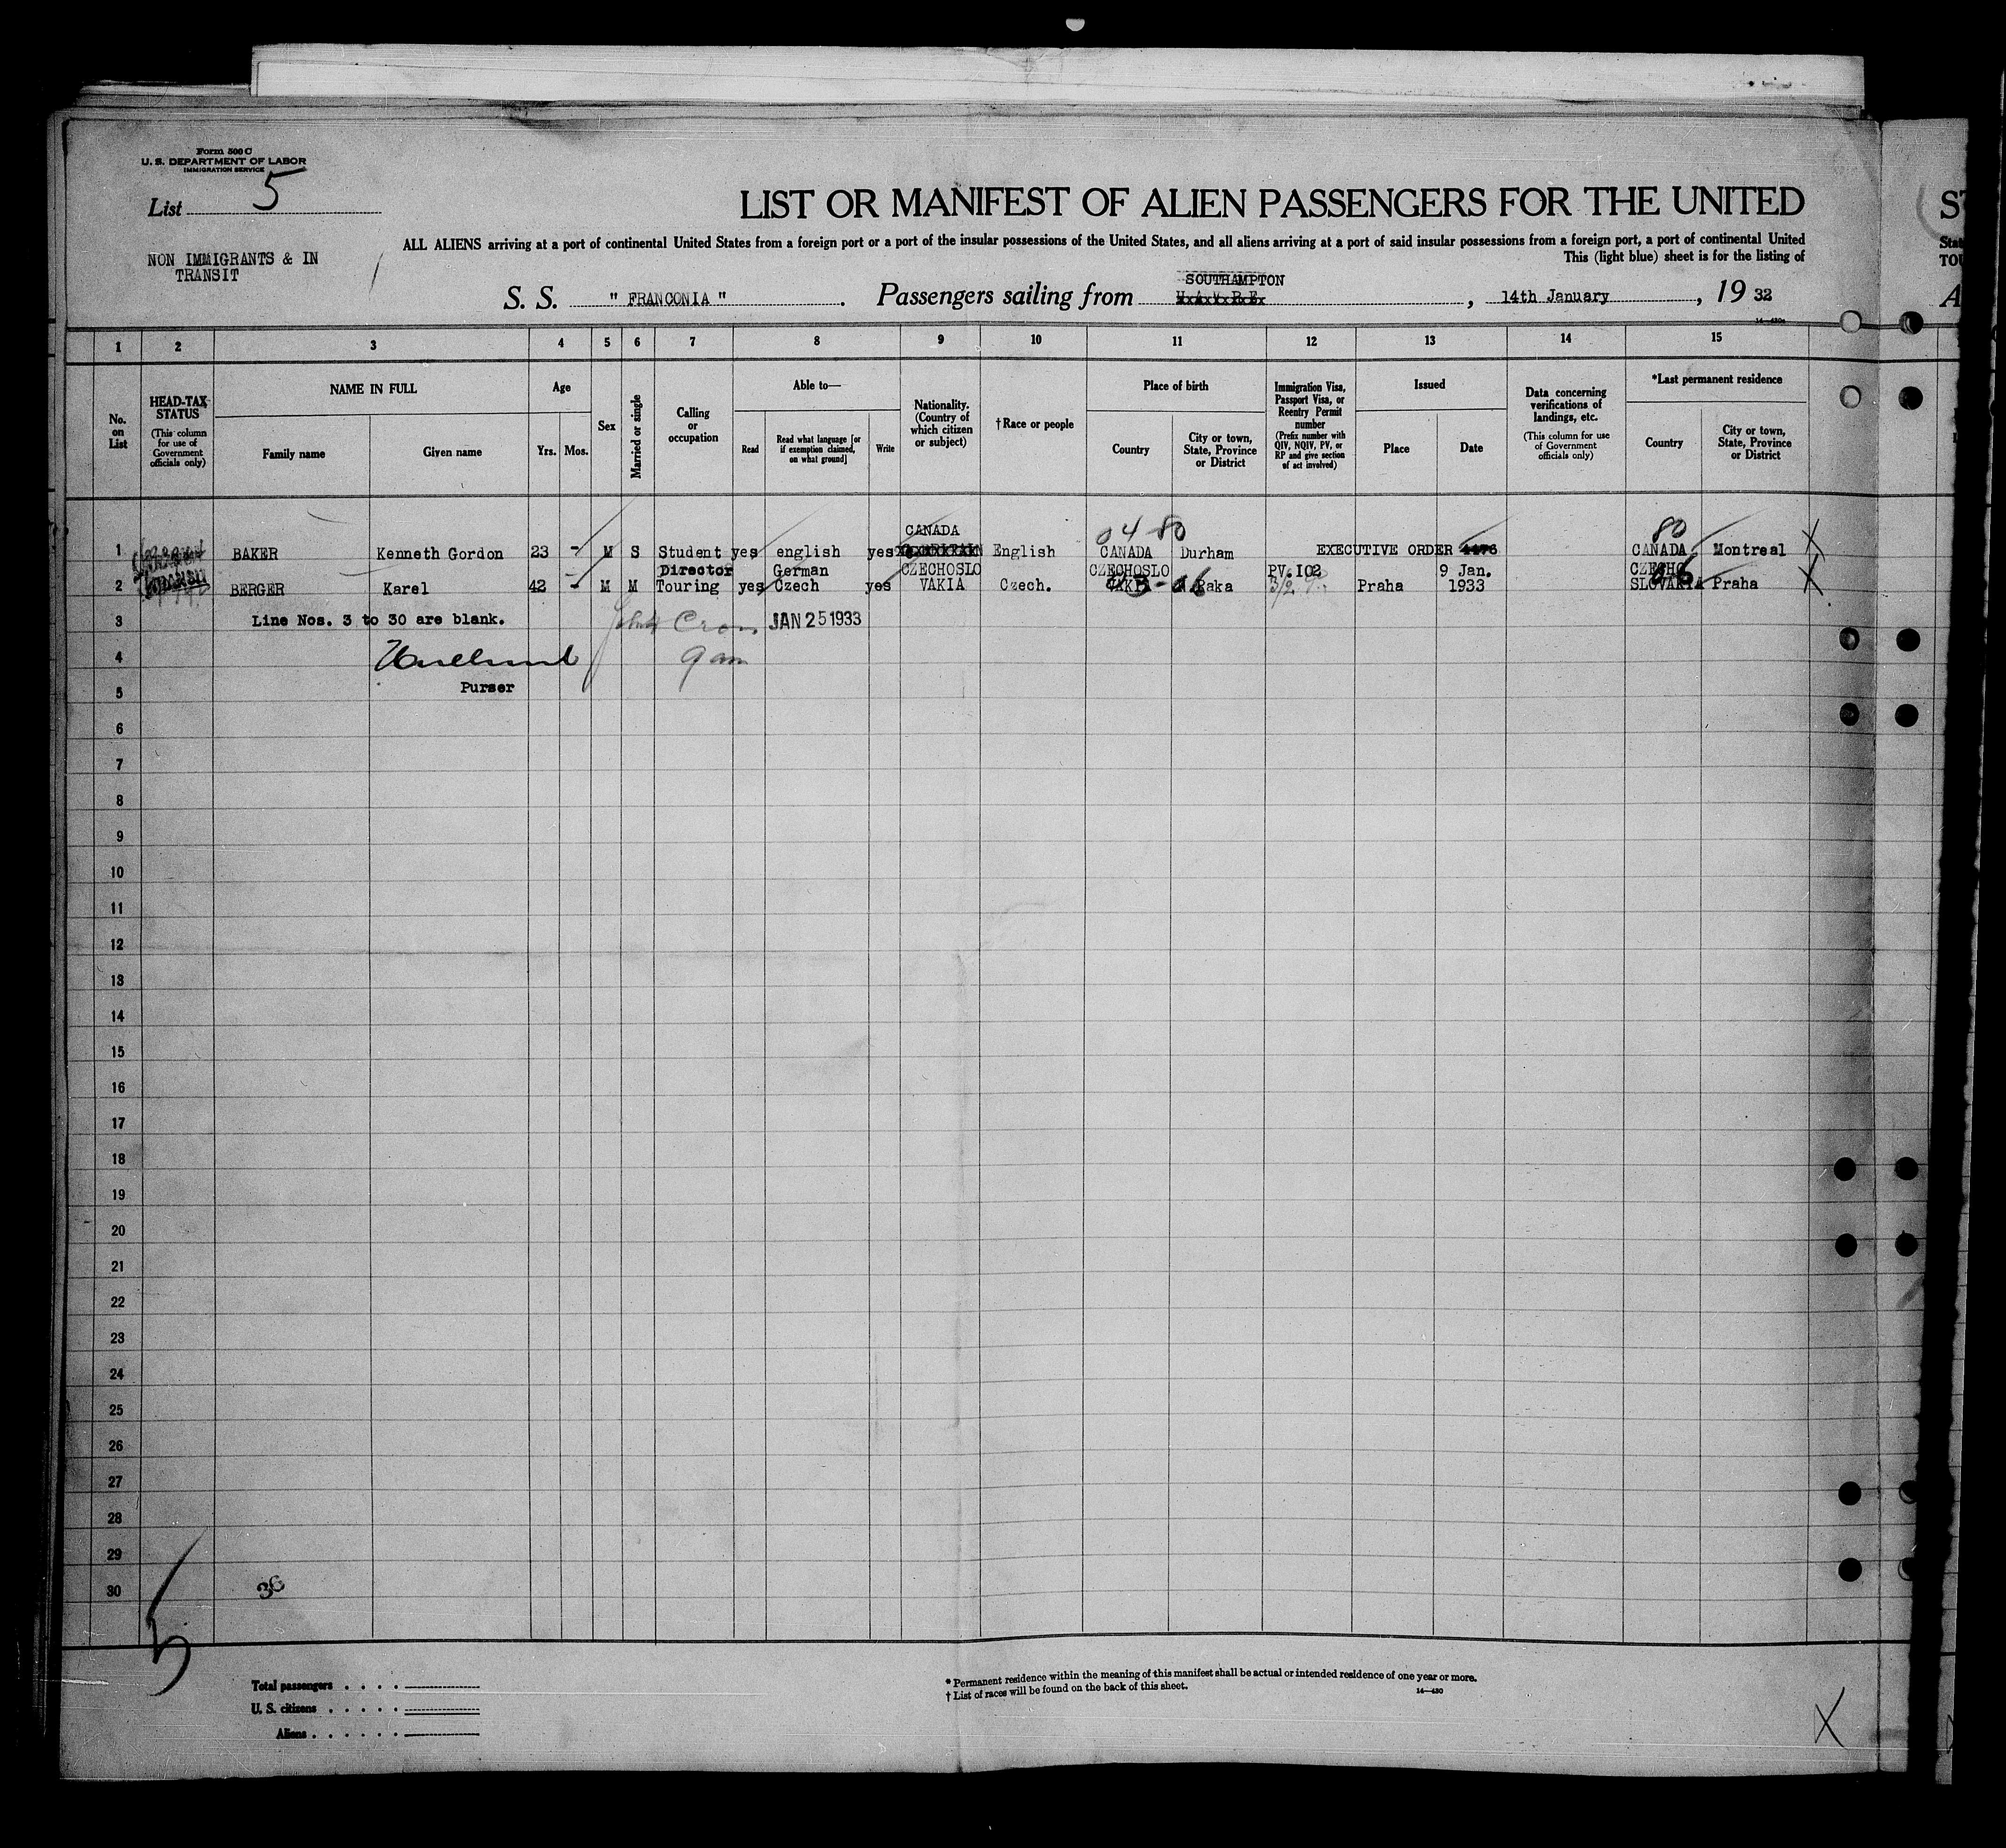 Form 500 C
U. S. DEPARTMENT OF LABOR
IMMIGRATION SERVICE
List 5
NON IMMIGRANTS & IN
TRANSIT
LIST OR MANIFEST OF ALIEN PASSENGERS FOR THE UNITED
ALL ALIENS arriving at a port of continental United States from a foreign port or a port of the insular possessions of the United States, and all aliens arriving at a port of said insular possessions from a foreign port, a port of continental United
This (light blue) sheet is for the listing of
SOUTHAMPTON
S. S. " FRANCONIA ". Passengers sailing from HAVRE, 14th January, 19 32
1 2 3 4 5 6 7 8 9 10 11 12 13 14 15
No. on List
HEAD-TAX STATUS (This column for use of Government officials only)
NAME IN FULL
Family name Given name
Age
Yrs. Mos.
Sex
Married or single
Calling or occupation
Able to—
Read Read what language [or if exemption claimed, on what ground] Write
Nationality. (Country of which citizen or subject)
†Race or people
Place of birth
Country City or town, State, Province or District
Immigration Visa, Passport Visa, or Reentry Permit number (Prefix number with QIV, NQIV, PV, or RP and give section of act involved)
Issued
Place Date
Data concerning verifications of landings, etc. (This column for use of Government officials only)
*Last permanent residence
Country City or town, State, Province or District
CANADA 04 80 80
1 BAKER Kenneth Gordon 23 - M S Student yes english yes English CANADA Durham EXECUTIVE ORDER 4476 CANADA Montreal X
Director German CZECHOSLO CZECHOSLO PV.102 9 Jan. CZECHO
2 TRANSIT BERGER Karel 42 - M M Touring yes Czech yes VAKIA Czech. VAKIA 3/2 Praha 1933 SLOVAKIA Praha X
3 Line Nos. 3 to 30 are blank. JAN 25 1933
4 9 am
5 Purser
6
7
8
9
10
11
12
13
14
15
16
17
18
19
20
21
22
23
24
25
26
27
28
29
30 36
5
Total passengers
U. S. citizens
Aliens
* Permanent residence within the meaning of this manifest shall be actual or intended residence of one year or more.
† List of races will be found on the back of this sheet.
14—430
X